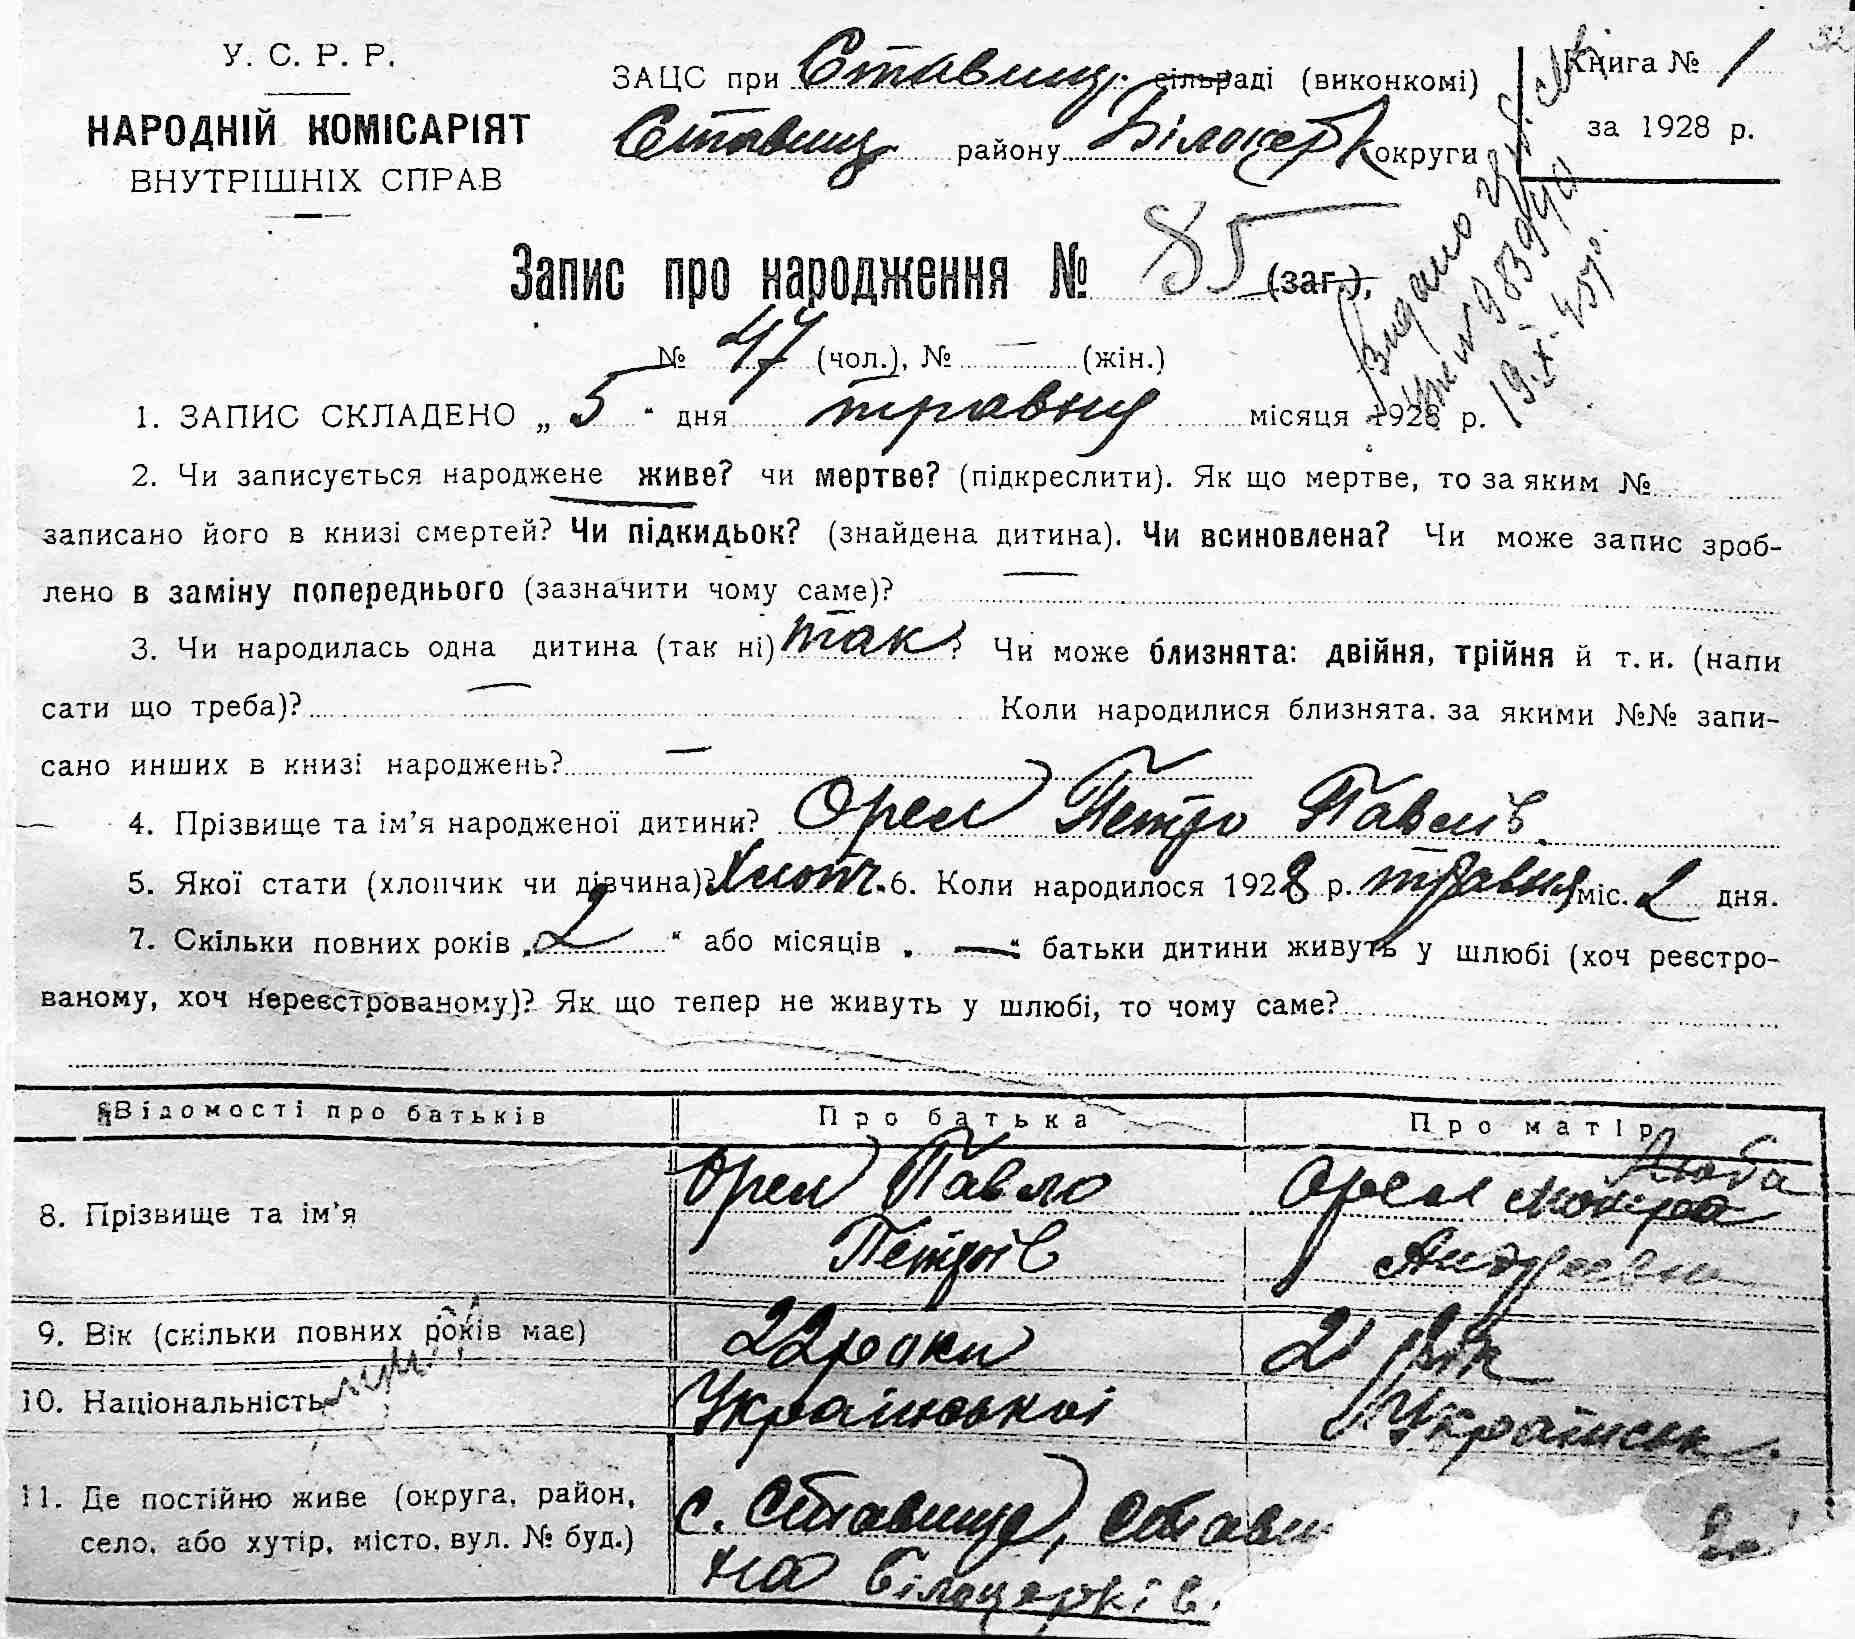 У. С. Р. Р.
НАРОДНІЙ КОМІСАРІЯТ
ВНУТРІШНІХ СПРАВ
ЗАЦС при Ставищ. сільраді (виконкомі)
Ставищ. району Білоцерк округи
Книга № 1
за 1928 р.
Видано
983940
19.X.45 р.
Запис про народження № 85 (заг.),
№ 47 (чол.), № — (жін.)
1. ЗАПИС СКЛАДЕНО „ 5 “ дня травня місяця 1928 р.
2. Чи записується народжене живе? чи мертве? (підкреслити). Як що мертве, то за яким №
записано його в книзі смертей? Чи підкидьок? (знайдена дитина). Чи всиновлена? Чи може запис зроб-
лено в заміну попереднього (зазначити чому саме)? —
3. Чи народилась одна дитина (так ні) так? Чи може близнята: двійня, трійня й т. и. (напи
сати що треба)? — Коли народилися близнята. за якими №№ запи-
сано инших в книзі народжень? —
4. Прізвище та ім’я народженої дитини? Орел Петро Павлів.
5. Якої стати (хлопчик чи дівчина)? Хлопч. 6. Коли народилося 1928 р. травня міс. 2 дня.
7. Скільки повних років „ 2 “ або місяців „ — “ батьки дитини живуть у шлюбі (хоч реєстро-
ваному, хоч нереєстрованому)? Як що тепер не живуть у шлюбі, то чому саме?
Відомості про батьків Про батька Про матір
8. Прізвище та ім’я Орел Павло Петрів Орел Люба Андреевна
9. Вік (скільки повних років має) 22 роки 21 рік
10. Національність Української Українськ.
11. Де постійно живе (округа, район,
село, або хутір, місто, вул. № буд.)
с. Ставище, Стави
на Білоцерків.